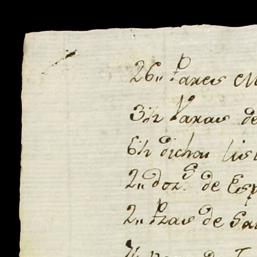 26,, Pares
3½ Varas de
6½ dichas lis
2,, doz.s de Esp
2,, Pzas de Sa